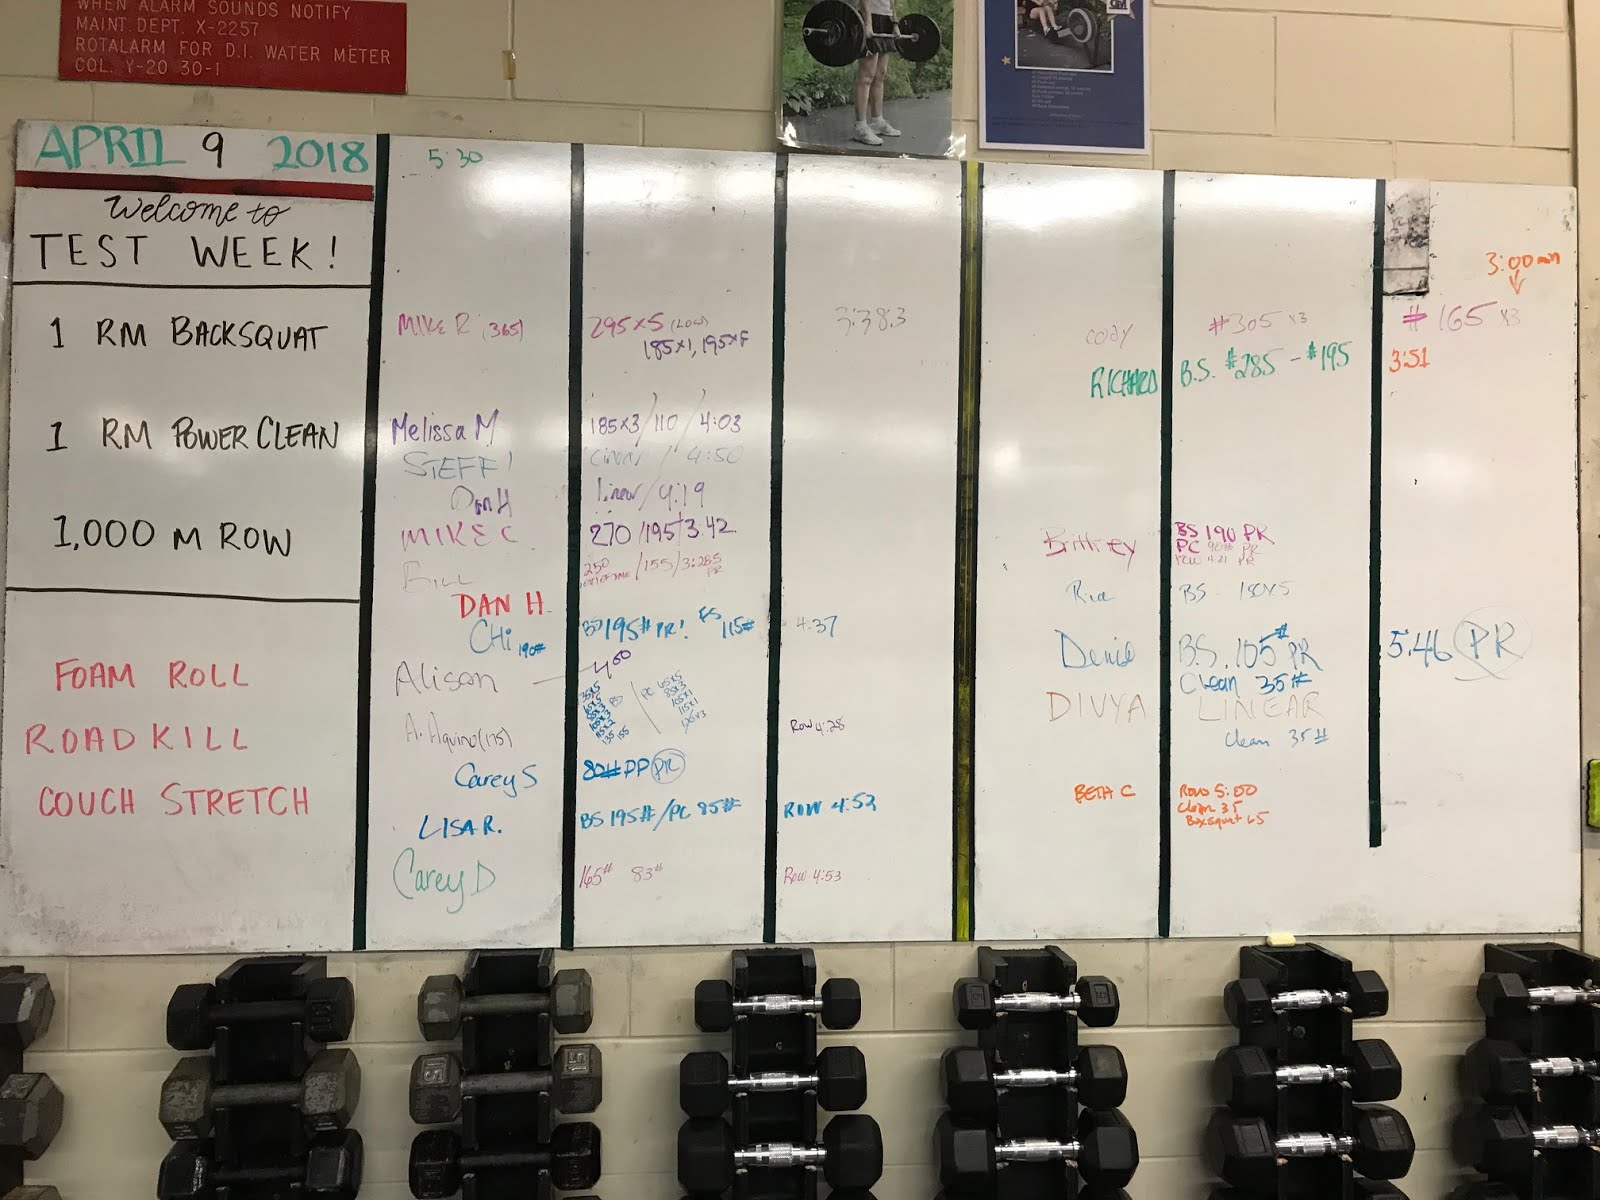 WHEN ALARM SOUNDS NOTIFY
MAINT. DEPT. X-2257
ROTALARM FOR D.I. WATER METER
COL. Y-20 30-1
APRIL 9 2018
Welcome to
TEST WEEK!
1 RM BACKSQUAT
1 RM POWER CLEAN
1,000 M ROW
FOAM ROLL
ROADKILL
COUCH STRETCH
5:30
MIKE R (365) 295x5 (LOW) 3:38.3
185x1, 195xF
Melissa M 185x3/110/4:03
STEFF linear/4:50
Dan H linear/4:19
MIKE C. 270/195/3:42
BILL 250 /155/3:28.5
PR
DAN H.
CHi 190# BS 195# PR! FS 115# 4:37
Alison
A. Aquino (175) Row 4:28
Carey S 80# PP PR
LISA R. BS 195#/PC 85# ROW 4:52
Carey D 165# 83# Row 4:53
3:00 min
Cody #305 x3 #165 x3
RICHARD B.S. #285 - #195 3:51
Brittney BS 190 PR
PC PR
ROW 4:21 PR
Ria BS 130x5
Denise B.S. 105# PR 5:46 PR
Clean 35#
DIVYA LINEAR
Clean 35#
BETH C Row 5:00
Clean 35
Box squat 65